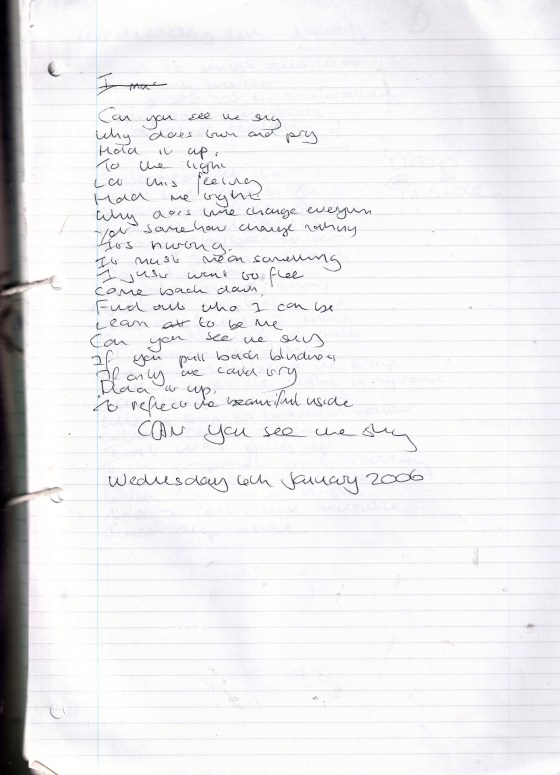 Can you see the sky
Why does love and pry
Hold it up,
To the light
Let this feeling
Hold me tight
Why does time change everyone
Yet somehow change nothing
It's hurting.
It must mean something
I just want to flee
Come back down,
Find out who I can be
Learn to be me
Can you see the sky
If you pull back blindness
If only we could try
Hold it up,
To reflect the beautiful inside
CAN you see the sky
Wednesday 6th January 2006